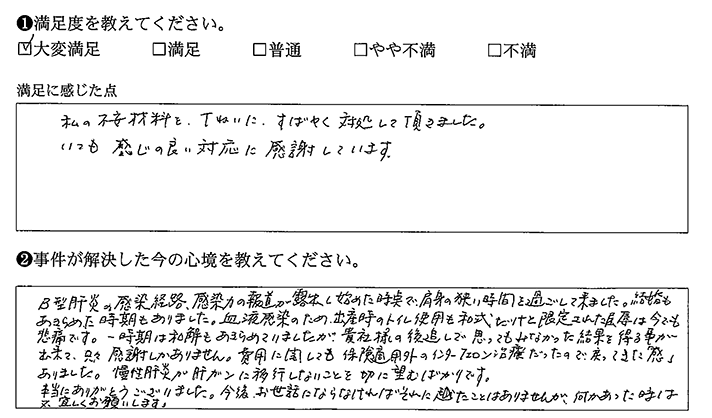 ❶満足度を教えてください。
☑大変満足 □満足 □普通 □やや不満 □不満
満足に感じた点
私の不安材料を、丁ねいに、すばやく対処して頂きました。
いつも感じの良い対応に感謝しています。
❷事件が解決した今の心境を教えてください。
B型肝炎の感染経路、感染力の報道が露出し始めた時点で、肩身の狭い時間を過ごして来ました。結婚も
あきらめた時期もありました。血液感染のため、出産時のトイレ使用も和式、だけと限定された屈辱は今でも
悲痛です。一時期は和解もあきらめていましたが、貴社様の後追しで思ってもみなかった結果を得る事が
出来て、只々感謝しかありません。費用に関しても保険適用外のインターフェロン治療だったので戻ってきた感」
ありました。慢性肝炎が肝ガンに移行しないことを切に望むばかりです。
本当にありがとうございました。今後、お世話にならなければそれに越したことはありませんが、何かあった時は
又、宜しくお願いします。